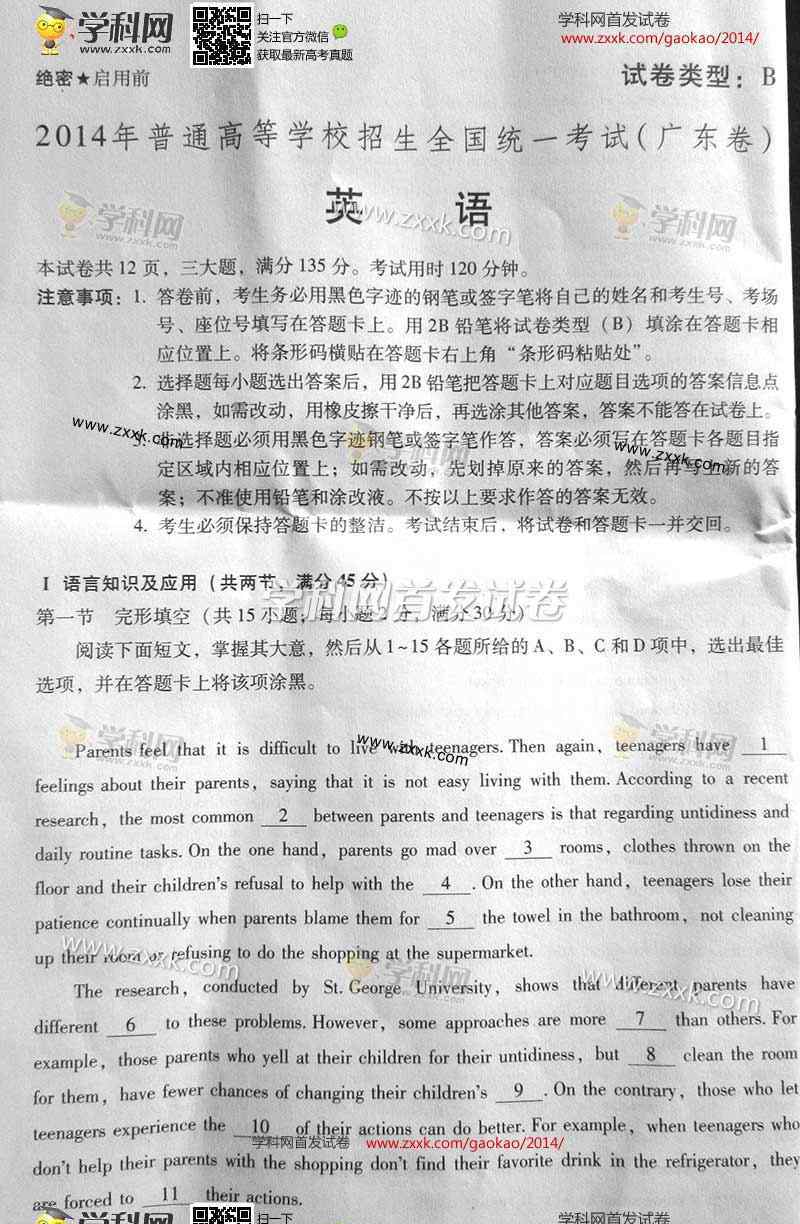 学科网
www.zxxk.com
扫一下
关注官方微信
获取最新高考真题
学科网首发试卷
www.zxxk.com/gaokao/2014/
绝密★启用前
试卷类型：B
2014年普通高等学校招生全国统一考试（广东卷）
英 语
学科网
www.zxxk.com
学科网
本试卷共12页，三大题，满分135分。考试用时120分钟。
注意事项：1. 答卷前，考生务必用黑色字迹的钢笔或签字笔将自己的姓名和考生号、考场
号、座位号填写在答题卡上。用2B铅笔将试卷类型（B）填涂在答题卡相
应位置上。将条形码横贴在答题卡右上角“条形码粘贴处”。
2. 选择题每小题选出答案后，用2B铅笔把答题卡上对应题目选项的答案信息点
涂黑，如需改动，用橡皮擦干净后，再选涂其他答案，答案不能答在试卷上。
www.zxxk.com
3. 非选择题必须用黑色字迹钢笔或签字笔作答，答案必须写在答题卡各题目指
学科网
www.zxxk.com
定区域内相应位置上；如需改动，先划掉原来的答案，然后再写上新的答
案；不准使用铅笔和涂改液。不按以上要求作答的答案无效。
4. 考生必须保持答题卡的整洁。考试结束后，将试卷和答题卡一并交回。
I 语言知识及应用（共两节，满分45分）
学科网首发试卷
第一节 完形填空（共15小题；每小题2分，满分30分）
阅读下面短文，掌握其大意，然后从1~15各题所给的A、B、C和D项中，选出最佳
选项，并在答题卡上将该项涂黑。
学科网
www.zxxk.com
学科网
Parents feel that it is difficult to live with teenagers. Then again, teenagers have 1
feelings about their parents, saying that it is not easy living with them. According to a recent
research, the most common 2 between parents and teenagers is that regarding untidiness and
daily routine tasks. On the one hand, parents go mad over 3 rooms, clothes thrown on the
floor and their children's refusal to help with the 4 . On the other hand, teenagers lose their
patience continually when parents blame them for 5 the towel in the bathroom, not cleaning
up their room or refusing to do the shopping at the supermarket.
www.zxxk.com
学科网
www.zxxk.com
The research, conducted by St. George University, shows that different parents have
different 6 to these problems. However, some approaches are more 7 than others. For
example, those parents who yell at their children for their untidiness, but 8 clean the room
for them, have fewer chances of changing their children's 9 . On the contrary, those who let
teenagers experience the 10 of their actions can do better. For example, when teenagers who
学科网首发试卷 www.zxxk.com/gaokao/2014/
don't help their parents with the shopping don't find their favorite drink in the refrigerator, they
are forced to 11 their actions.
学科网
扫一下
学科网首发试卷